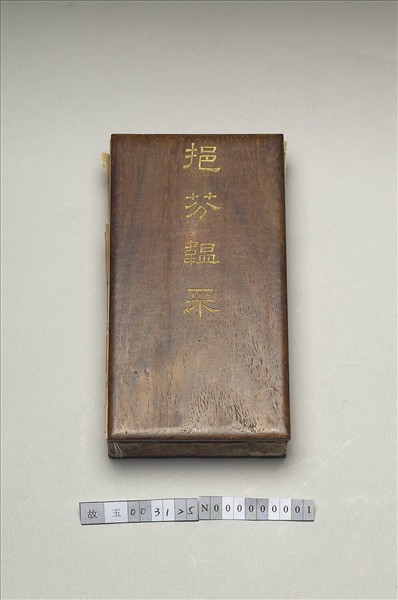 挹芬韞采
故玉003125N000000001